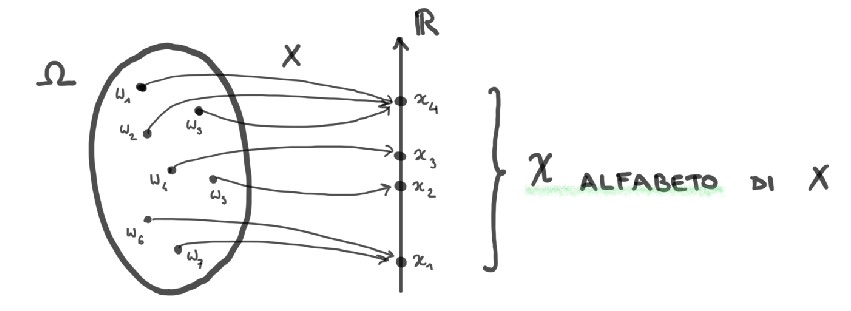 Ω
X
ℝ
ω₁
ω₂
ω₃
ω₄
ω₅
ω₆
ω₇
x₄
x₃
x₂
x₁
𝒳 ALFABETO DI X